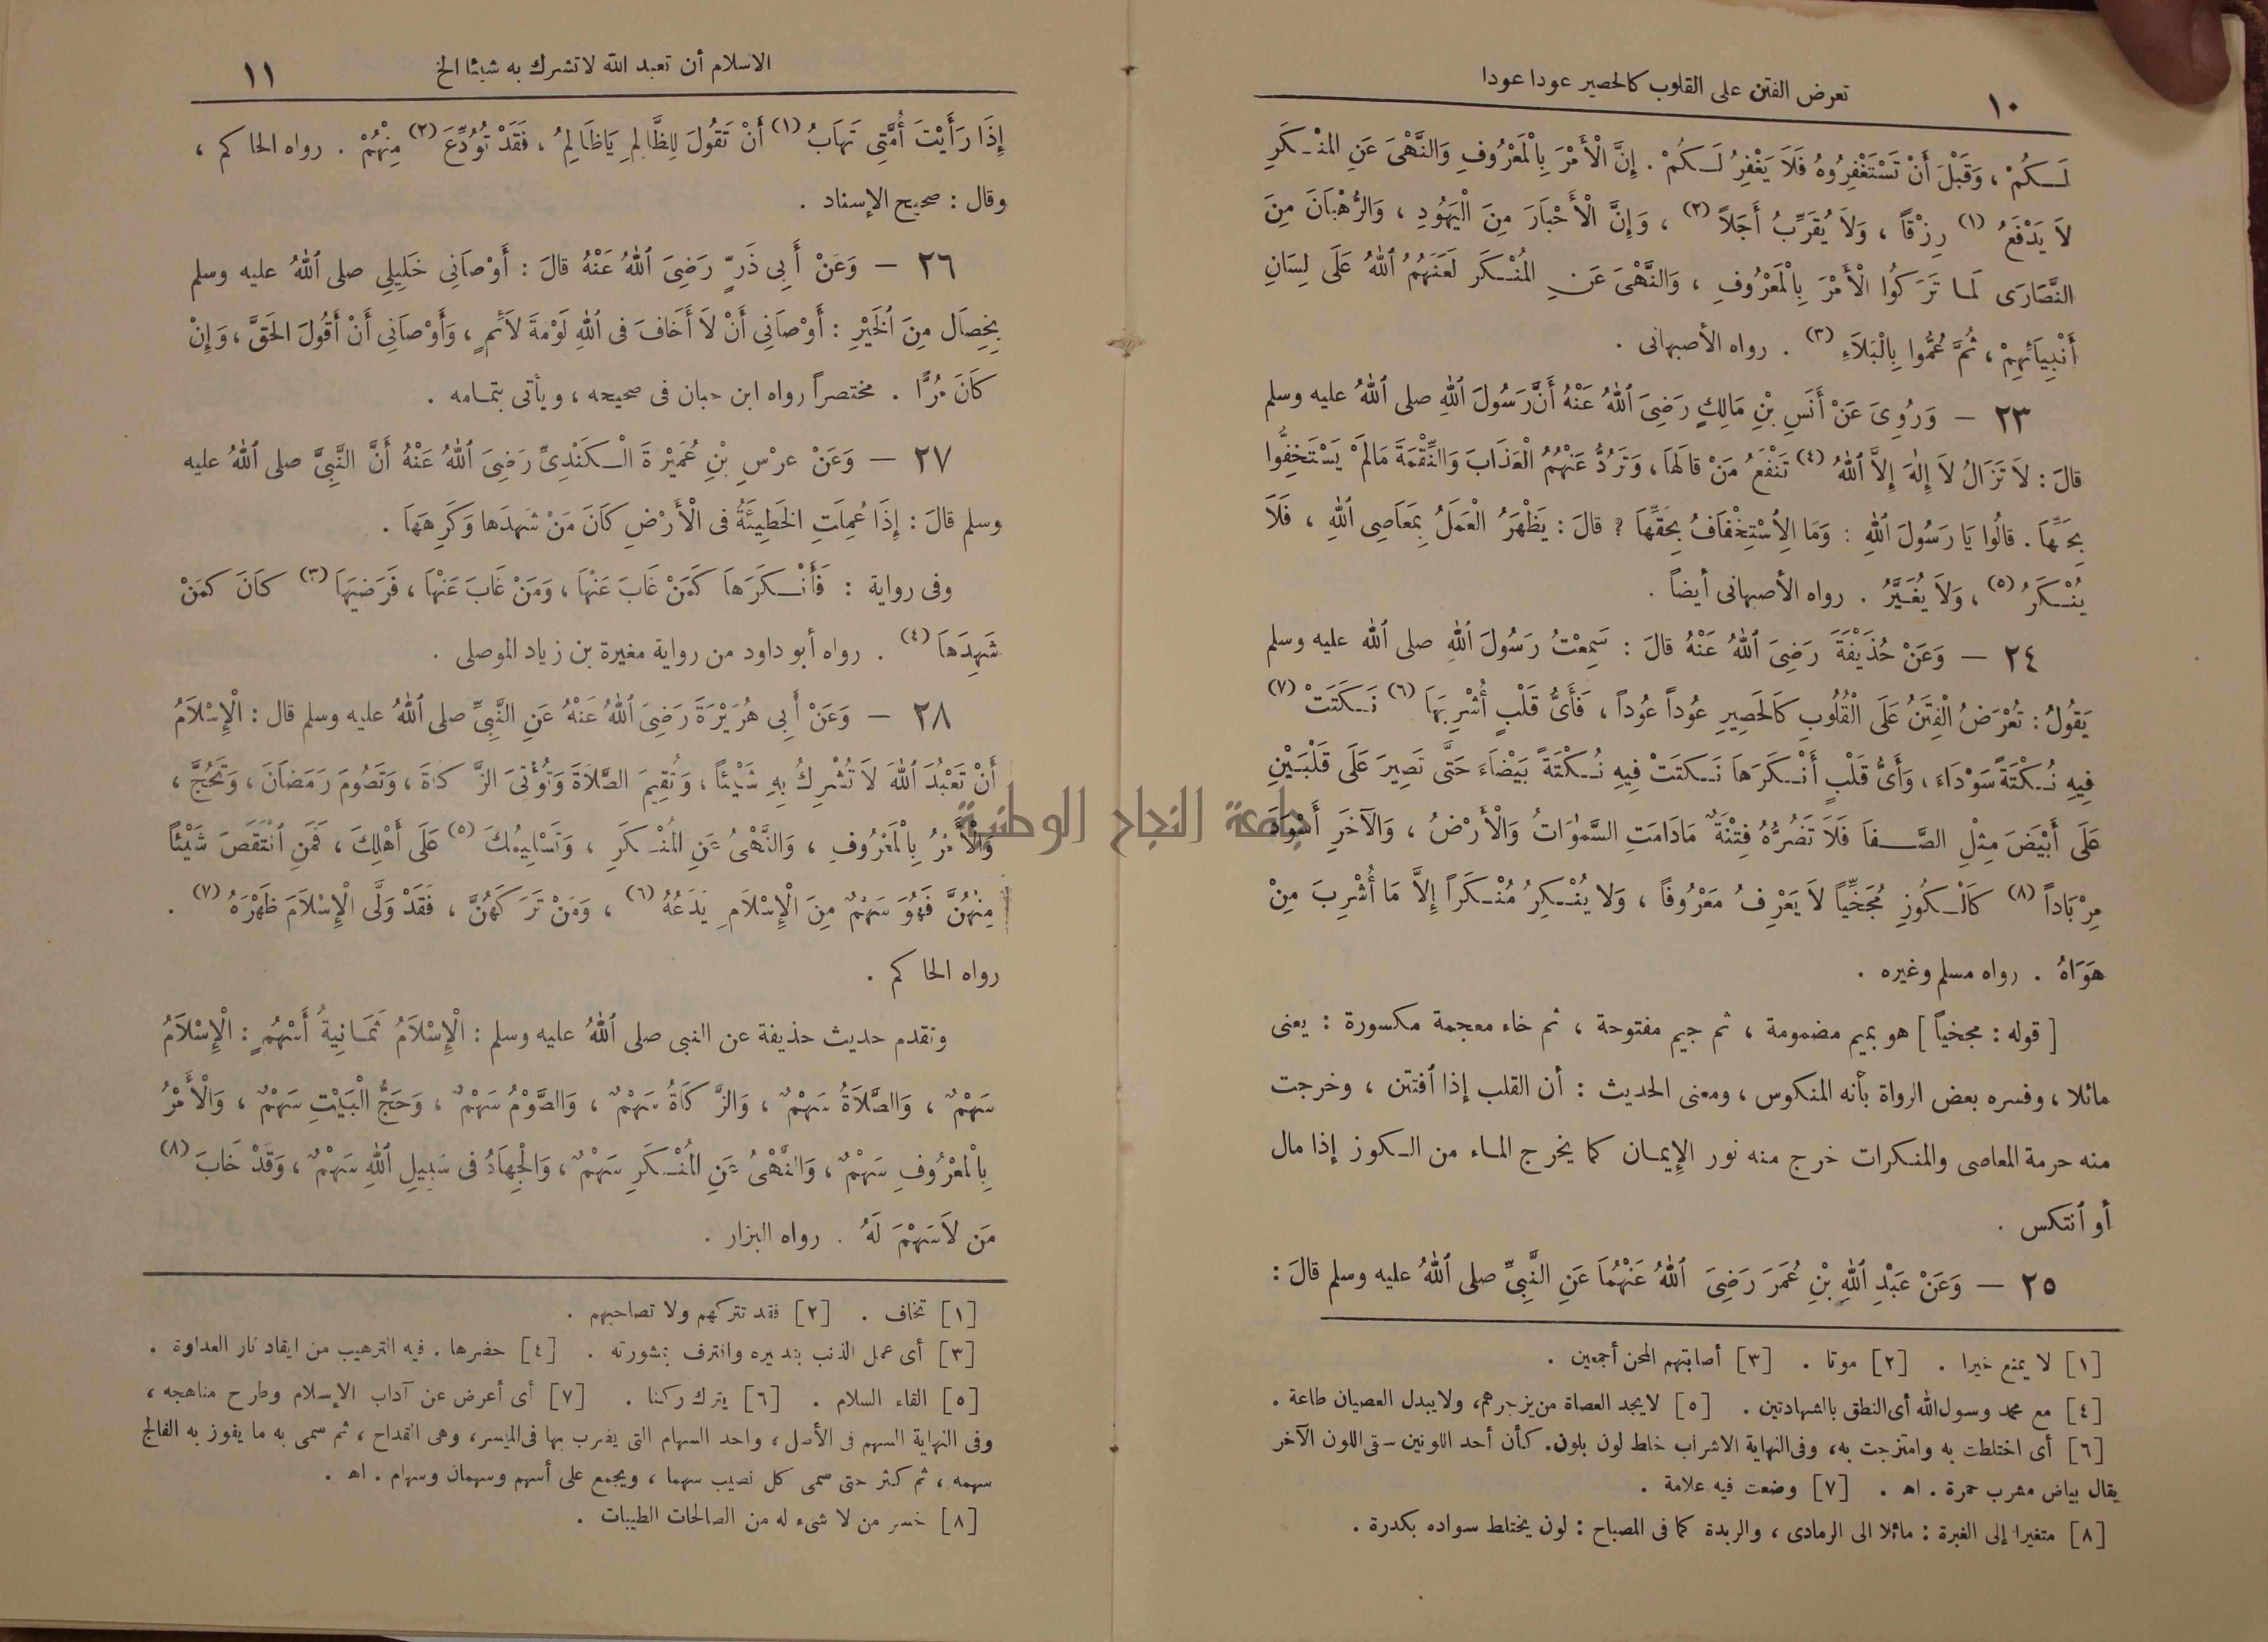 ١٠
تعرض الفتن على القلوب كالحصير عودا عودا
لَكُمْ ، وَقَبْلَ أَنْ تَسْتَغْفِرُوهُ فَلاَ يَغْفِرُ لَكُمْ . إِنَّ الْأَمْرَ بِالْمَعْرُوفِ وَالنَّهْىَ عَنِ المنْكَرِ
لاَ يَدْفَعُ (١) رِزْقاً ، وَلاَ يُقَرِّبُ أَجَلاً (٢) ، وَإِنَّ الْأَحْبَارَ مِنَ الْيَهُودِ ، وَالرُّهْبَانَ مِنَ
النَّصَارَى لَمَا تَرَكُوا الْأَمْرَ بِالْمَعْرُوفِ ، وَالنَّهْىَ عَنِ المُنْكَرِ لَعَنَهُمُ اللهُ عَلَى لِسَانِ
أَنْبِيَائِهِمْ ، ثُمَّ عُمُّوا بِالْبَلاَءِ (٣) . رواه الأصبهانى .
٢٣ — وَرُوِىَ عَنْ أَنَسِ بْنِ مَالِكٍ رَضِىَ اللهُ عَنْهُ أَنَّ رَسُولَ اللهِ صلى اللهُ عليه وسلم
قالَ : لاَ تَزَالُ لاَ إِلٰهَ إِلاَّ اللهُ (٤) تَنْفَعُ مَنْ قالَهَا ، وَتَرُدُّ عَنْهُمُ الْعَذَابَ وَالنِّقْمَةَ مَالَمْ يَسْتَخِفُّوا
بِحَقِّهَا . قالُوا يَا رَسُولَ اللهِ : وَمَا الِاسْتِخْفَافُ بِحَقِّهَا ؟ قالَ : يَظْهَرُ الْعَمَلُ بِمَعَاصِى اللهِ ، فَلاَ
يُنْكَرُ (٥) ، وَلاَ يُغَيَّرُ . رواه الأصبهانى أيضاً .
٢٤ — وَعَنْ حُذَيْفَةَ رَضِىَ اللهُ عَنْهُ قالَ : سَمِعْتُ رَسُولَ اللهِ صلى الله عليه وسلم
يَقُولُ : تُعْرَضُ الْفِتَنُ عَلَى الْقُلُوبِ كَالْحَصِيرِ عُوداً عُوداً ، فَأَىُّ قَلْبٍ أُشْرِبَهَا (٦) نَكَتَتْ (٧)
فِيهِ نُكْتَةً سَوْدَاءَ ، وَأَىُّ قَلْبٍ أَنْكَرَهَا نَكَتَتْ فِيهِ نُكْتَةً بَيْضَاءَ حَتَّى تَصِيرَ عَلَى قَلْبَيْنِ
عَلَى أَبْيَضَ مِثْلِ الصَّفَا فَلاَ تَضُرُّهُ فِتْنَةٌ مَادَامَتِ السَّمٰوَاتُ وَالْأَرْضُ ، وَالآخَرِ أَسْوَدَ
مِرْبَادًّا (٨) كَالْكُوزِ مُجَخِّيًا لاَ يَعْرِفُ مَعْرُوفًا ، وَلا يُنْكِرُ مُنْكَرًا إِلاَّ مَا أُشْرِبَ مِنْ
هَوَاهُ . رواه مسلم وغيره .
[ قوله : مجخياً ] هو بميم مضمومة ، ثم جيم مفتوحة ، ثم خاء معجمة مكسورة : يعنى
مائلا ، وفسره بعض الرواة بأنه المنكوس ، ومعنى الحديث : أن القلب إذا افتتن ، وخرجت
منه حرمة المعاصى والمنكرات خرج منه نور الإيمان كما يخرج الماء من الكوز إذا مال
أو انتكس .
٢٥ — وَعَنْ عَبْدِ اللهِ بْنِ عُمَرَ رَضِىَ اللهُ عَنْهُمَا عَنِ النَّبِىِّ صلى اللهُ عليه وسلم قالَ :
[١] لا يمنع خيرا . [٢] موتا . [٣] أصابتهم المحن أجمعين .
[٤] مع محمد رسول الله أى النطق بالشهادتين . [٥] لا يجد العصاة من يزجرهم، ولا يبدل العصيان طاعة .
[٦] أى اختلطت به وامتزجت به، وفى النهاية الاشراب خلط لون بلون. كأن أحد اللونين سقى اللون الآخر
يقال بياض مشرب حمرة . اهـ . [٧] وضعت فيه علامة .
[٨] متغيرا إلى الغبرة : مائلا الى الرمادى ، والربدة كما فى المصباح : لون يختلط سواده بكدرة .
الاسلام أن تعبد الله لا تشرك به شيئا الخ
١١
إِذَا رَأَيْتَ أُمَّتِى تَهَابُ (١) أَنْ تَقُولَ لِلظَّالِمِ يَاظَالِمُ ، فَقَدْ تُوُدِّعَ (٢) مِنْهُمْ . رواه الحاكم ،
وقال : صحيح الإسناد .
٢٦ — وَعَنْ أَبِى ذَرٍّ رَضِىَ اللهُ عَنْهُ قالَ : أَوْصَانِى خَلِيلِى صلى اللهُ عليه وسلم
بِخِصَالٍ مِنَ الْخَيْرِ : أَوْصَانِى أَنْ لاَ أَخَافَ فى اللهِ لَوْمَةَ لاَئِمٍ ، وَأَوْصَانِى أَنْ أَقُولَ الحَقَّ ، وَإِنْ
كَانَ مُرًّا . مختصراً رواه ابن حبان فى صحيحه ، ويأتى بتمامه .
٢٧ — وَعَنْ عرْسِ بْنِ عُمَيْرَةَ الْكَنْدِىِّ رَضِىَ اللهُ عَنْهُ أَنَّ النَّبِىَّ صلى اللهُ عليه
وسلم قالَ : إِذَا عُمِلَتِ الخَطِيئَةُ فى الْأَرْضِ كَانَ مَنْ شَهِدَها وَكَرِهَهَا .
وفى رواية : فَأَنْكَرَهَا كَمَنْ غَابَ عَنْهَا ، وَمَنْ غَابَ عَنْهَا ، فَرَضِيَهَا (٣) كَانَ كمَنْ
شَهِدَهَا (٤) . رواه أبو داود من رواية مغيرة بن زياد الموصلى .
٢٨ — وَعَنْ أَبِى هُرَيْرَةَ رَضِىَ اللهُ عَنْهُ عَنِ النَّبِىِّ صلى اللهُ عليه وسلم قال : الْإِسْلاَمُ
أَنْ تَعْبُدَ اللهَ لاَ تُشْرِكُ بِهِ شَيْئاً ، وَتُقِيمَ الصَّلاَةَ وَتُؤْتِىَ الزَّكاةَ ، وَتَصُومَ رَمَضَانَ ، وَتَحُجَّ ،
وَالْأَمْرُ بِالْمَعْرُوفِ ، وَالنَّهْىُ عَنِ المُنْكَرِ ، وَتَسْلِيمُكَ (٥) عَلَى أَهْلِكَ ، فَمَنِ انْتَقَصَ شَيْئاً
مِنْهُنَّ فَهُوَ سَهْمٌ مِنَ الْإِسْلاَمِ يَدَعُهُ (٦) ، وَمَنْ تَرَكَهُنَّ ، فَقَدْ وَلَّى الْإِسْلاَمَ ظَهْرَهُ (٧) .
رواه الحاكم .
وتقدم حديث حذيفة عن النبى صلى اللهُ عليه وسلم : الْإِسْلاَمُ ثَمَانِيةُ أَسْهُمٍ : الْإِسْلاَمُ
سَهْمٌ ، وَالصَّلاَةُ سَهْمٌ ، وَالزَّكاَةُ سَهْمٌ ، وَالصَّوْمُ سَهْمٌ ، وَحَجُّ الْبَيْتِ سَهْمٌ ، وَالْأَمْرُ
بِالْمَعْرُوفِ سَهْمٌ ، وَالنَّهْىُ عَنِ المُنْكَرِ سَهْمٌ ، وَالْجِهَادُ فى سَبِيلِ اللهِ سَهْمٌ ، وَقَدْ خَابَ (٨)
مَن لاَسَهْمَ لَهُ . رواه البزار .
[١] تخاف . [٢] فقد تتركهم ولا تصاحبهم .
[٣] أى عمل الذنب بتدبيره واقترف بمشورته . [٤] حضرها . فيه الترهيب من ايقاد نار العداوة .
[٥] القاء السلام . [٦] يترك ركنا . [٧] أى أعرض عن آداب الإسلام وطرح مناهجه ،
وفى النهاية السهم فى الأصل ، واحد السهام التى يضرب بها فى الميسر، وهى القداح ، ثم سمى به ما يفوز به الفالج
سهمه ، ثم كثر حتى سمى كل نصيب سهما ، ويجمع على أسهم وسهمان وسهام . اهـ .
[٨] خسر من لا شىء له من الصالحات الطيبات .
جامعة النجاح الوطنية